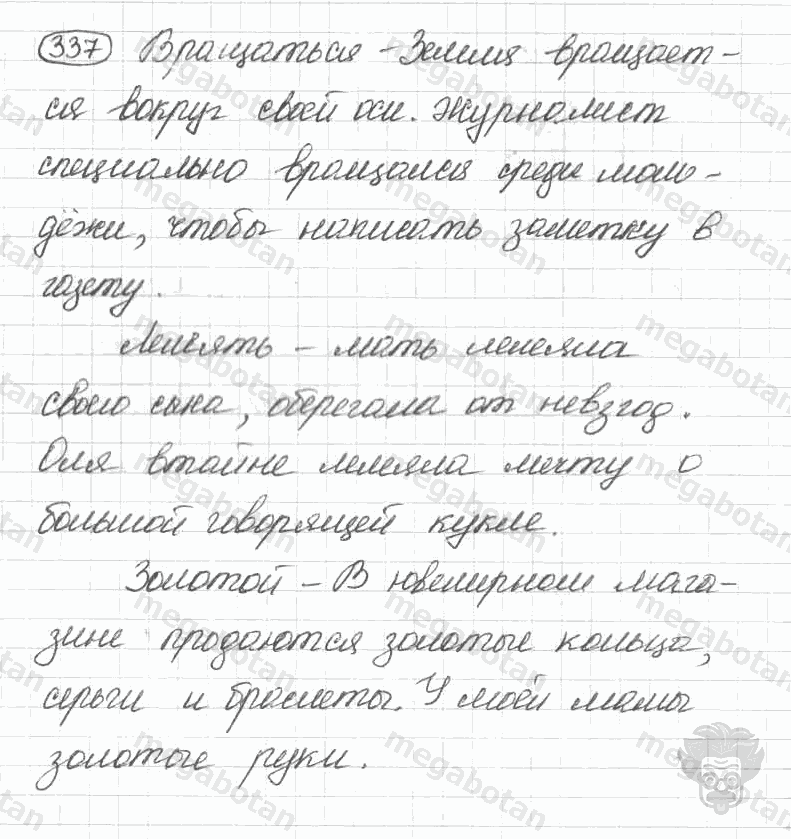 337 Вращаться – Земля вращает-
ся вокруг своей оси. Журналист
специально вращался среди моло-
дёжи, чтобы написать заметку в
газету.
Лелеять – мать лелеяла
своего сына, оберегала от невзгод.
Оля втайне лелеяла мечту о
большой говорящей кукле.
Золотой – В ювелирном мага-
зине продаются золотые кольца,
серьги и браслеты. У моей мамы
золотые руки.
megabotan